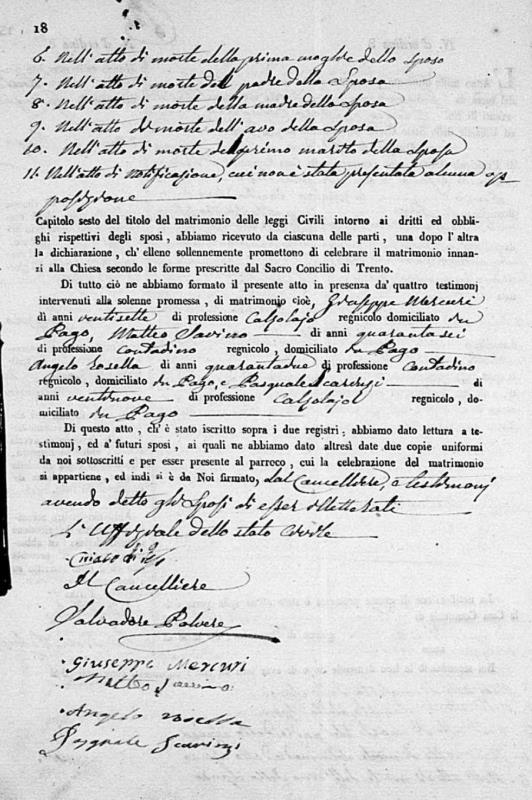 18
6. Nell'atto di morte della prima moglie dello Sposo
7. Nell'atto di morte del padre della Sposa
8. Nell'atto di morte della madre della Sposa
9. Nell'atto di morte dell'avo della Sposa
10. Nell'atto di morte del primo marito della Sposa
11. Nell'atto di notificazione, cui non è stata presentata alcuna op
posizione
Capitolo sesto del titolo del matrimonio delle leggi Civili intorno ai dritti ed obbli-
ghi rispettivi degli sposi, abbiamo ricevuto da ciascuna delle parti, una dopo l'altra
la dichiarazione, ch'elleno sollennemente promettono di celebrare il matrimonio innan-
zi alla Chiesa secondo le forme prescritte dal Sacro Concilio di Trento.
Di tutto ciò ne abbiamo formato il presente atto in presenza da' quattro testimonj
intervenuti alla solenne promessa, di matrimonio cioè, Giuseppe Mercuri
di anni ventisette di professione Calzolajo regnicolo domiciliato in
Pago, Matteo Savino di anni quarantasei
di professione contadino regnicolo, domiciliato in Pago
Angelo Rosella di anni quarantadue di professione Contadino
regnicolo, domiciliato in Pago, e Pasquale di
anni ventinove di professione Calzolajo regnicolo, do-
miciliato in Pago
Di questo atto, ch'è stato iscritto sopra i due registri, abbiamo dato lettura a te-
stimonj, ed a' futuri sposi, ai quali ne abbiamo dato altresì date due copie uniformi
da noi sottoscritti e per esser presente al parroco, cui la celebrazione del matrimonio
si appartiene, ed indi si è da Noi firmato, dal Cancelliere, e testimonj
avendo detto gli Sposi di esser illetterati
L'Uffiziale dello stato Civile
Il Cancelliere
Salvadore Polvere
Giuseppe Mercuri
Matteo Savino
Angelo Rosella
Pasquale